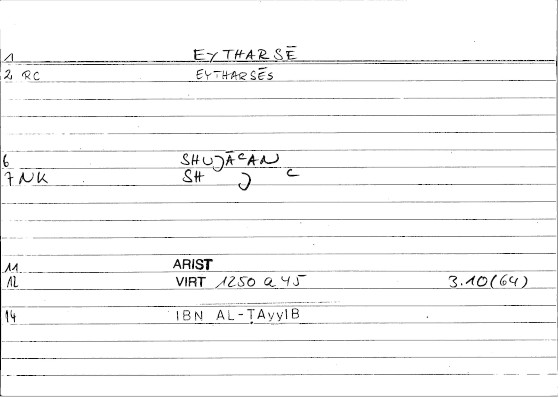 1 EYTHARSĒ
2 RC EYTHARSĒS
6 SHUJĀCAN
7 NK SH J C
11 ARIST
12 VIRT 1250 a 45 3.10(64)
14 IBN AL-ṬAyyIB